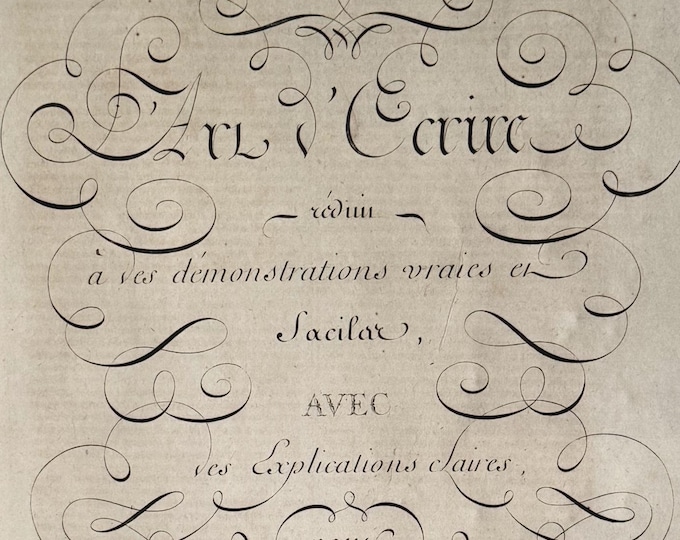 L'Art d'Ecrire
réduit
à des démonstrations vraies et
faciles,
AVEC
des Explications claires,